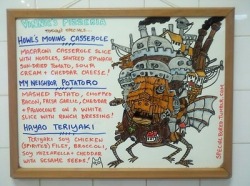 VINNIE'S PIZZERIA
SPECIALS
HOWL'S MOVING CASSEROLE
MACARONI CASSEROLE SLICE
WITH NOODLES, SAUTÉED SPINACH
SUN-DRIED TOMATO, SOUR
CREAM + CHEDDAR CHEESE!
MY NEIGHBOR POTATORO
MASHED POTATO, CHOPPED
BACON, FRESH GARLIC, CHEDDAR
+ PROVOLONE ON A WHITE
SLICE WITH RANCH DRESSING!
HAYAO TERIYAKI
TERIYAKI SOY CHICKEN
(SPIRITED) FILET, BROCCOLI,
SOY MOZZARELLA + CHEDDAR
WITH SESAME SEEDS!
SPECIALBOARDS.TUMBLR.COM